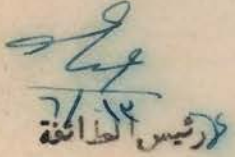 ٦/١٣
رئيس الطائفة